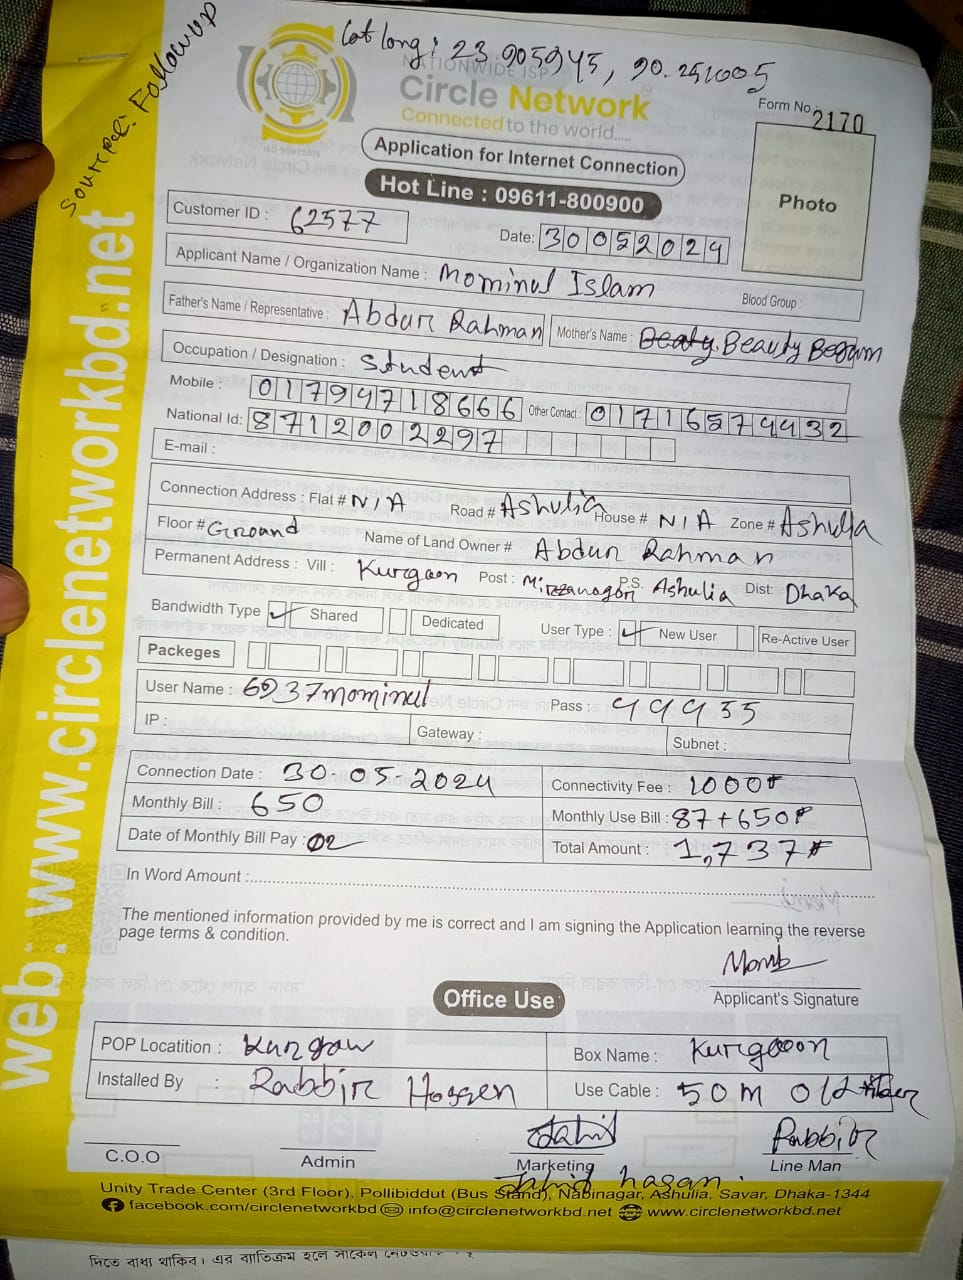 Source: Followup
Lat long: 23.905945, 90.251005
NATIONWIDE ISP
Circle Network
Connected to the world.....
ISO 9001:2015
Form No.: 2170
Application for Internet Connection
Hot Line : 09611-800900
Photo
Customer ID : 62577
Date: 30052024
Applicant Name / Organization Name : Mominul Islam
Blood Group :
Father's Name / Representative : Abdur Rahman Mother's Name : Beauty Begum
Occupation / Designation : Student
Mobile : 01794718666 Other Contact : 01716574432
National Id: 8712002297
E-mail :
Connection Address : Flat # N/A Road # Ashulia House # N/A Zone # Ashulia
Floor # Ground Name of Land Owner # Abdur Rahman
Permanent Address : Vill : Kurgaon Post : Mirzanagor P.S. Ashulia Dist: Dhaka
Bandwidth Type ✓ Shared Dedicated User Type : ✓ New User Re-Active User
Packeges
User Name : 6237mominul Pass : 999935
IP : Gateway : Subnet :
Connection Date : 30-05-2024 Connectivity Fee : 1000
Monthly Bill : 650 Monthly Use Bill : 87+650
Date of Monthly Bill Pay : 02 Total Amount : 1,737
In Word Amount :
The mentioned information provided by me is correct and I am signing the Application learning the reverse
page terms & condition.
Momb
Applicant's Signature
Office Use
POP Locatition : Kurgaw Box Name : Kurgaoon
Installed By : Rabbir Hossen Use Cable : 50m Old fiber
C.O.O Admin Marketing Line Man
Rabbir
hasan
Unity Trade Center (3rd Floor), Pollibiddut (Bus Stand), Nabinagar, Ashulia, Savar, Dhaka-1344
facebook.com/circlenetworkbd info@circlenetworkbd.net www.circlenetworkbd.net
web: www.circlenetworkbd.net
দিতে বাধ্য থাকিব। এর ব্যতিক্রম হলে সার্কেল